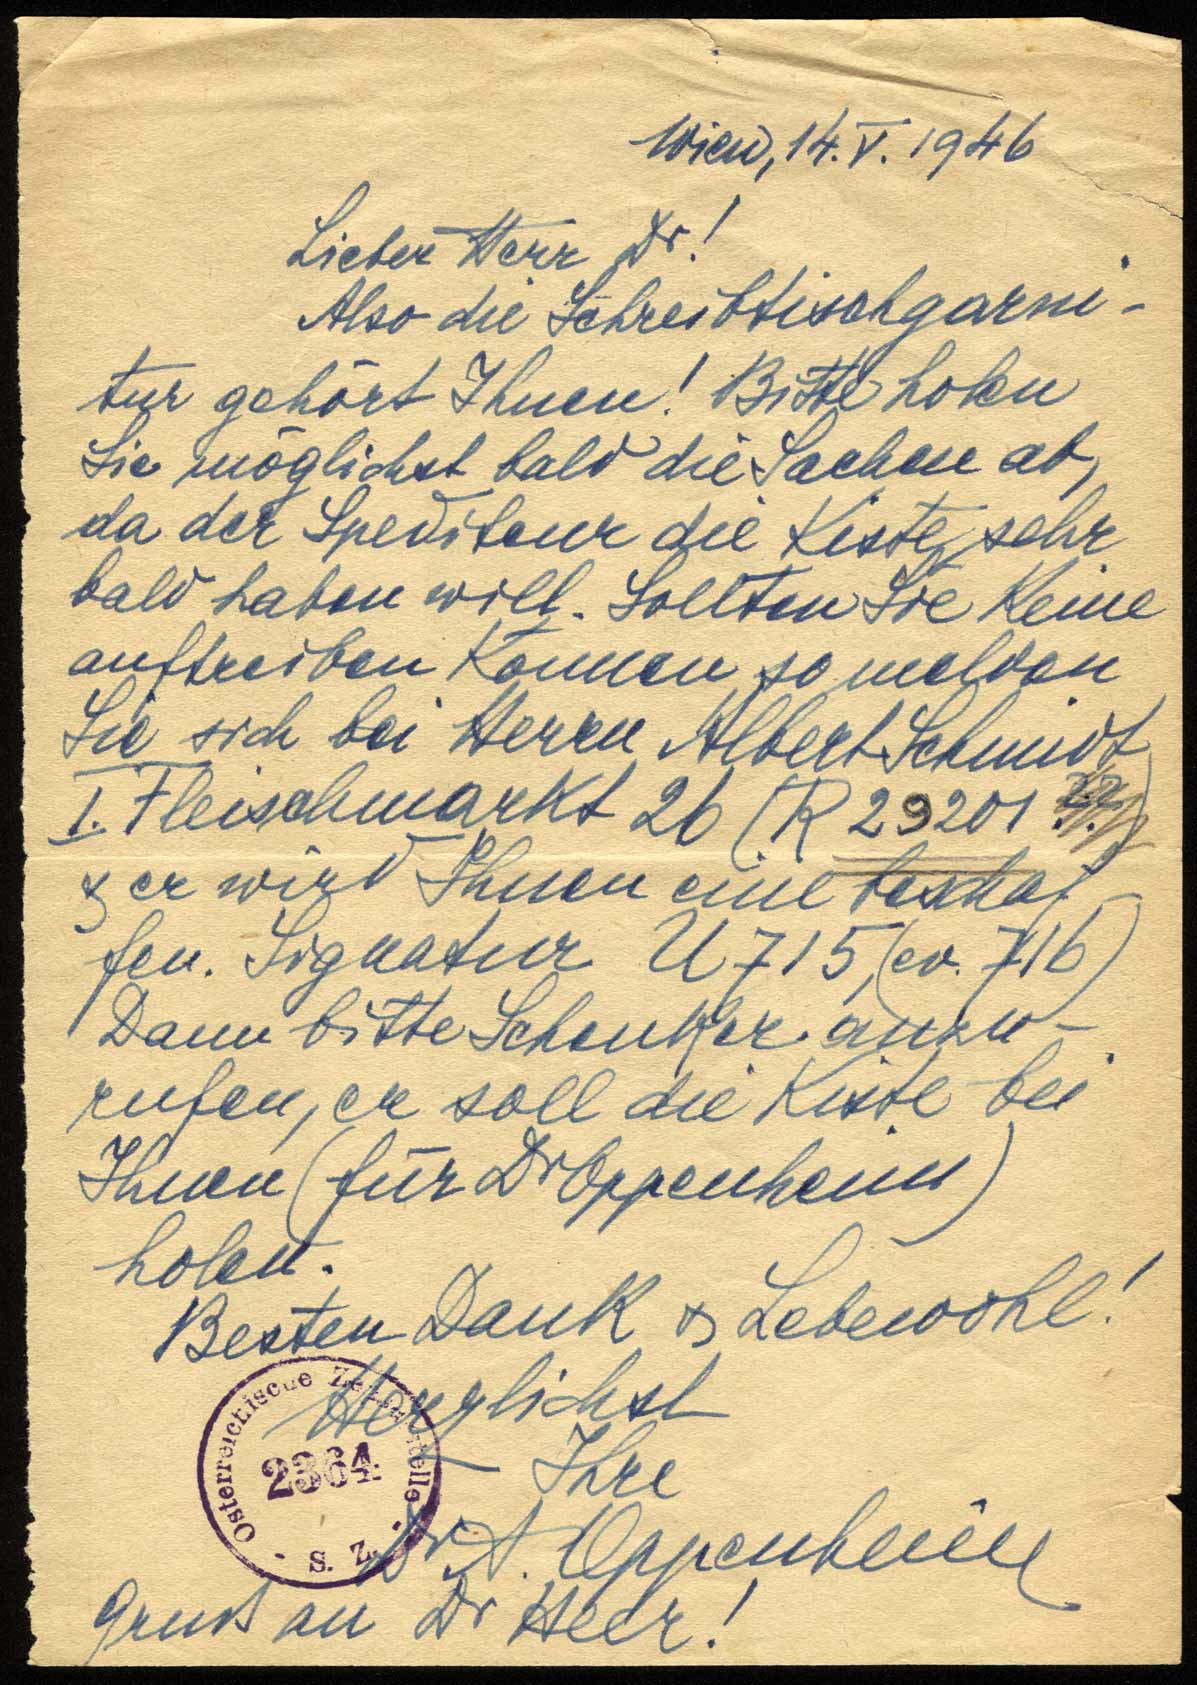 Wien, 14.V. 1946
Lieber Herr Dr!
Also die Schreibtischgarni-
tur gehört Ihnen! Bitte holen
Sie möglichst bald die Sachen ab,
da der Spediteur die Kiste sehr
bald haben will. Sollten Sie Keine
auftreiben Können so melden
Sie sich bei Herrn Albert Schmidt
I. Fleischmarkt 26 (R 29201)
& er wird Ihnen eine beschaf
fen. Signatur U 715, (ev. 716)
Dann bitte Schenker anzu-
rufen, er soll die Kiste bei
Ihnen (für Dr Oppenheim)
holen.
Besten Dank & Lebewohl!
Herzlichst
Ihre
Dr A. Oppenheim
Gruß an Dr Heer!
Österreichische Zensurstelle
2364
S. Z.